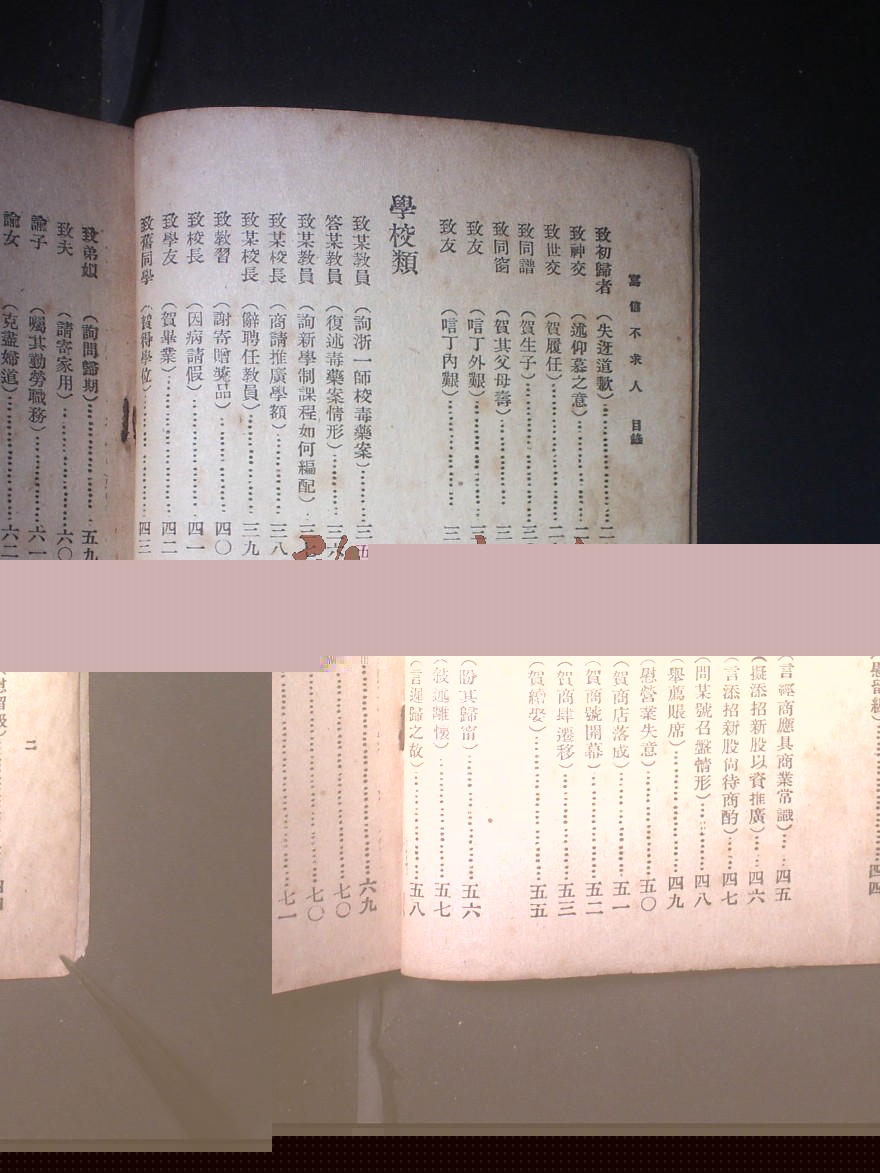 寫信不求人 目錄
致初歸者 (失迓道歉)
致神交 (述仰慕之意)
致世交 (賀履任)
致同譜 (賀生子)
致同窗 (賀其父母壽)
致友 (唁丁外艱)
致友 (唁丁內艱)
學校類
致某教員 (詢浙一師校毒藥案)
答某教員 (復述毒藥案情形)
致某教員 (詢新學制課程如何編配)
致某校長 (商請推廣學額) 三八
致某校長 (辭聘任教員) 三九
致教習 (謝寄贈獎品) 四〇
致校長 (因病請假) 四一
致學友 (賀畢業) 四二
致舊同學 (賀得學位) 四三
致弟媳 (詢問歸期) 五九
致夫 (請寄家用) 六〇
諭子 (囑其勤勞職務) 六一
諭女 (克盡婦道) 六二
(慰留級) 四四
(言經商應具商業常識) 四五
(擬添招新股以資推廣) 四六
(言添招新股尚待商酌) 四七
(問某號召盤情形) 四八
(舉薦賬席) 四九
(慰營業失意) 五〇
(賀商店落成) 五一
(賀商號開幕) 五二
(賀商肆遷移) 五三
(賀續娶) 五五
(盼其歸甯) 五六
(敍述離懷) 五七
(言遲歸之故) 五八
六九
七〇
七〇
七一
二